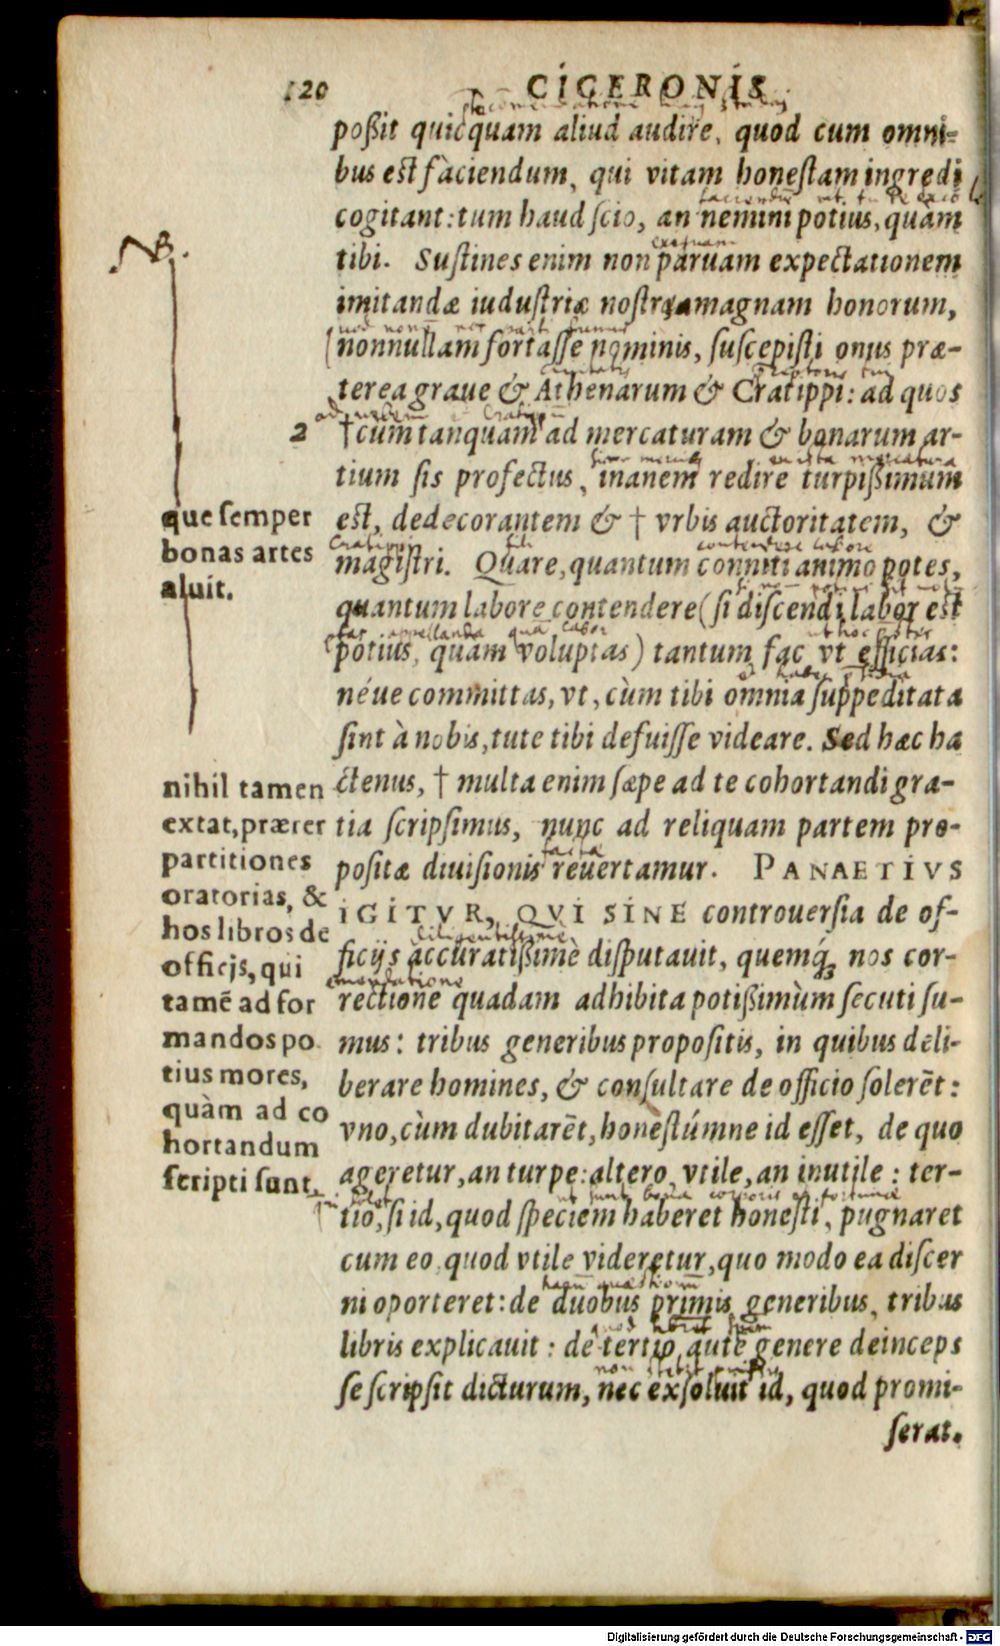 120 CICERONIS
poßit quicquam aliud audire, quod cum omni-
bus est faciendum, qui vitam honestam ingredi
cogitant: tum haud scio, an nemini potius, quàm
tibi. Sustines enim non paruam expectationem
imitandæ iudustriæ nostræ magnam honorum,
nonnullam fortasse nominis, suscepisti onus præ-
terea graue & Athenarum & Cratippi: ad quos
2 † cum tanquam ad mercaturam & bonarum ar-
tium sis profectus, inanem redire turpißimum
est, dedecorantem & † vrbis auctoritatem, &
magistri. Quare, quantum conniti animo potes,
quantum labore contendere (si discendi labor est
potius, quàm voluptas) tantum fac vt efficias:
néue committas, vt, cùm tibi omnia suppeditata
sint à nobis, tute tibi defuisse videare. Sed hæc ha
ctenus, † multa enim sæpe ad te cohortandi gra-
tia scripsimus, nunc ad reliquam partem pro-
positæ diuisionis reuertamur. PANAETIVS
IGITVR, QVI SINE controuersia de of-
ficijs accuratißimè disputauit, quemq́; nos cor-
rectione quadam adhibita potißimùm secuti su-
mus: tribus generibus propositis, in quibus deli-
berare homines, & consultare de officio solerēt:
vno, cùm dubitarēt, honestúmne id esset, de quo
ageretur, an turpe: altero, vtile, an inutile: ter-
tio, si id, quod speciem haberet honesti, pugnaret
cum eo, quod vtile videretur, quo modo ea discer
ni oporteret: de duobus primis generibus, tribus
libris explicauit: de tertio autē genere deinceps
se scripsit dicturum, nec exsoluit id, quod promi-
serat.
NB.
que semper
bonas artes
aluit.
nihil tamen
extat, prærer
partitiones
oratorias, &
hos libros de
officijs, qui
tamē ad for
mandos po
tius mores,
quàm ad co
hortandum
scripti sunt.
Digitalisierung gefördert durch die Deutsche Forschungsgemeinschaft - DFG